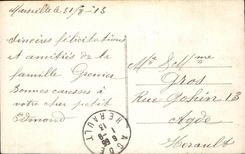 Marseille le 31/8-13
Sincères félicitations
et amitiés de la
famille Grenier
Bonnes caresses à
votre cher petit
Edmond
Mr & Mme
Gros
Rue 13
Agde
Hérault
AGDE
HERAULT